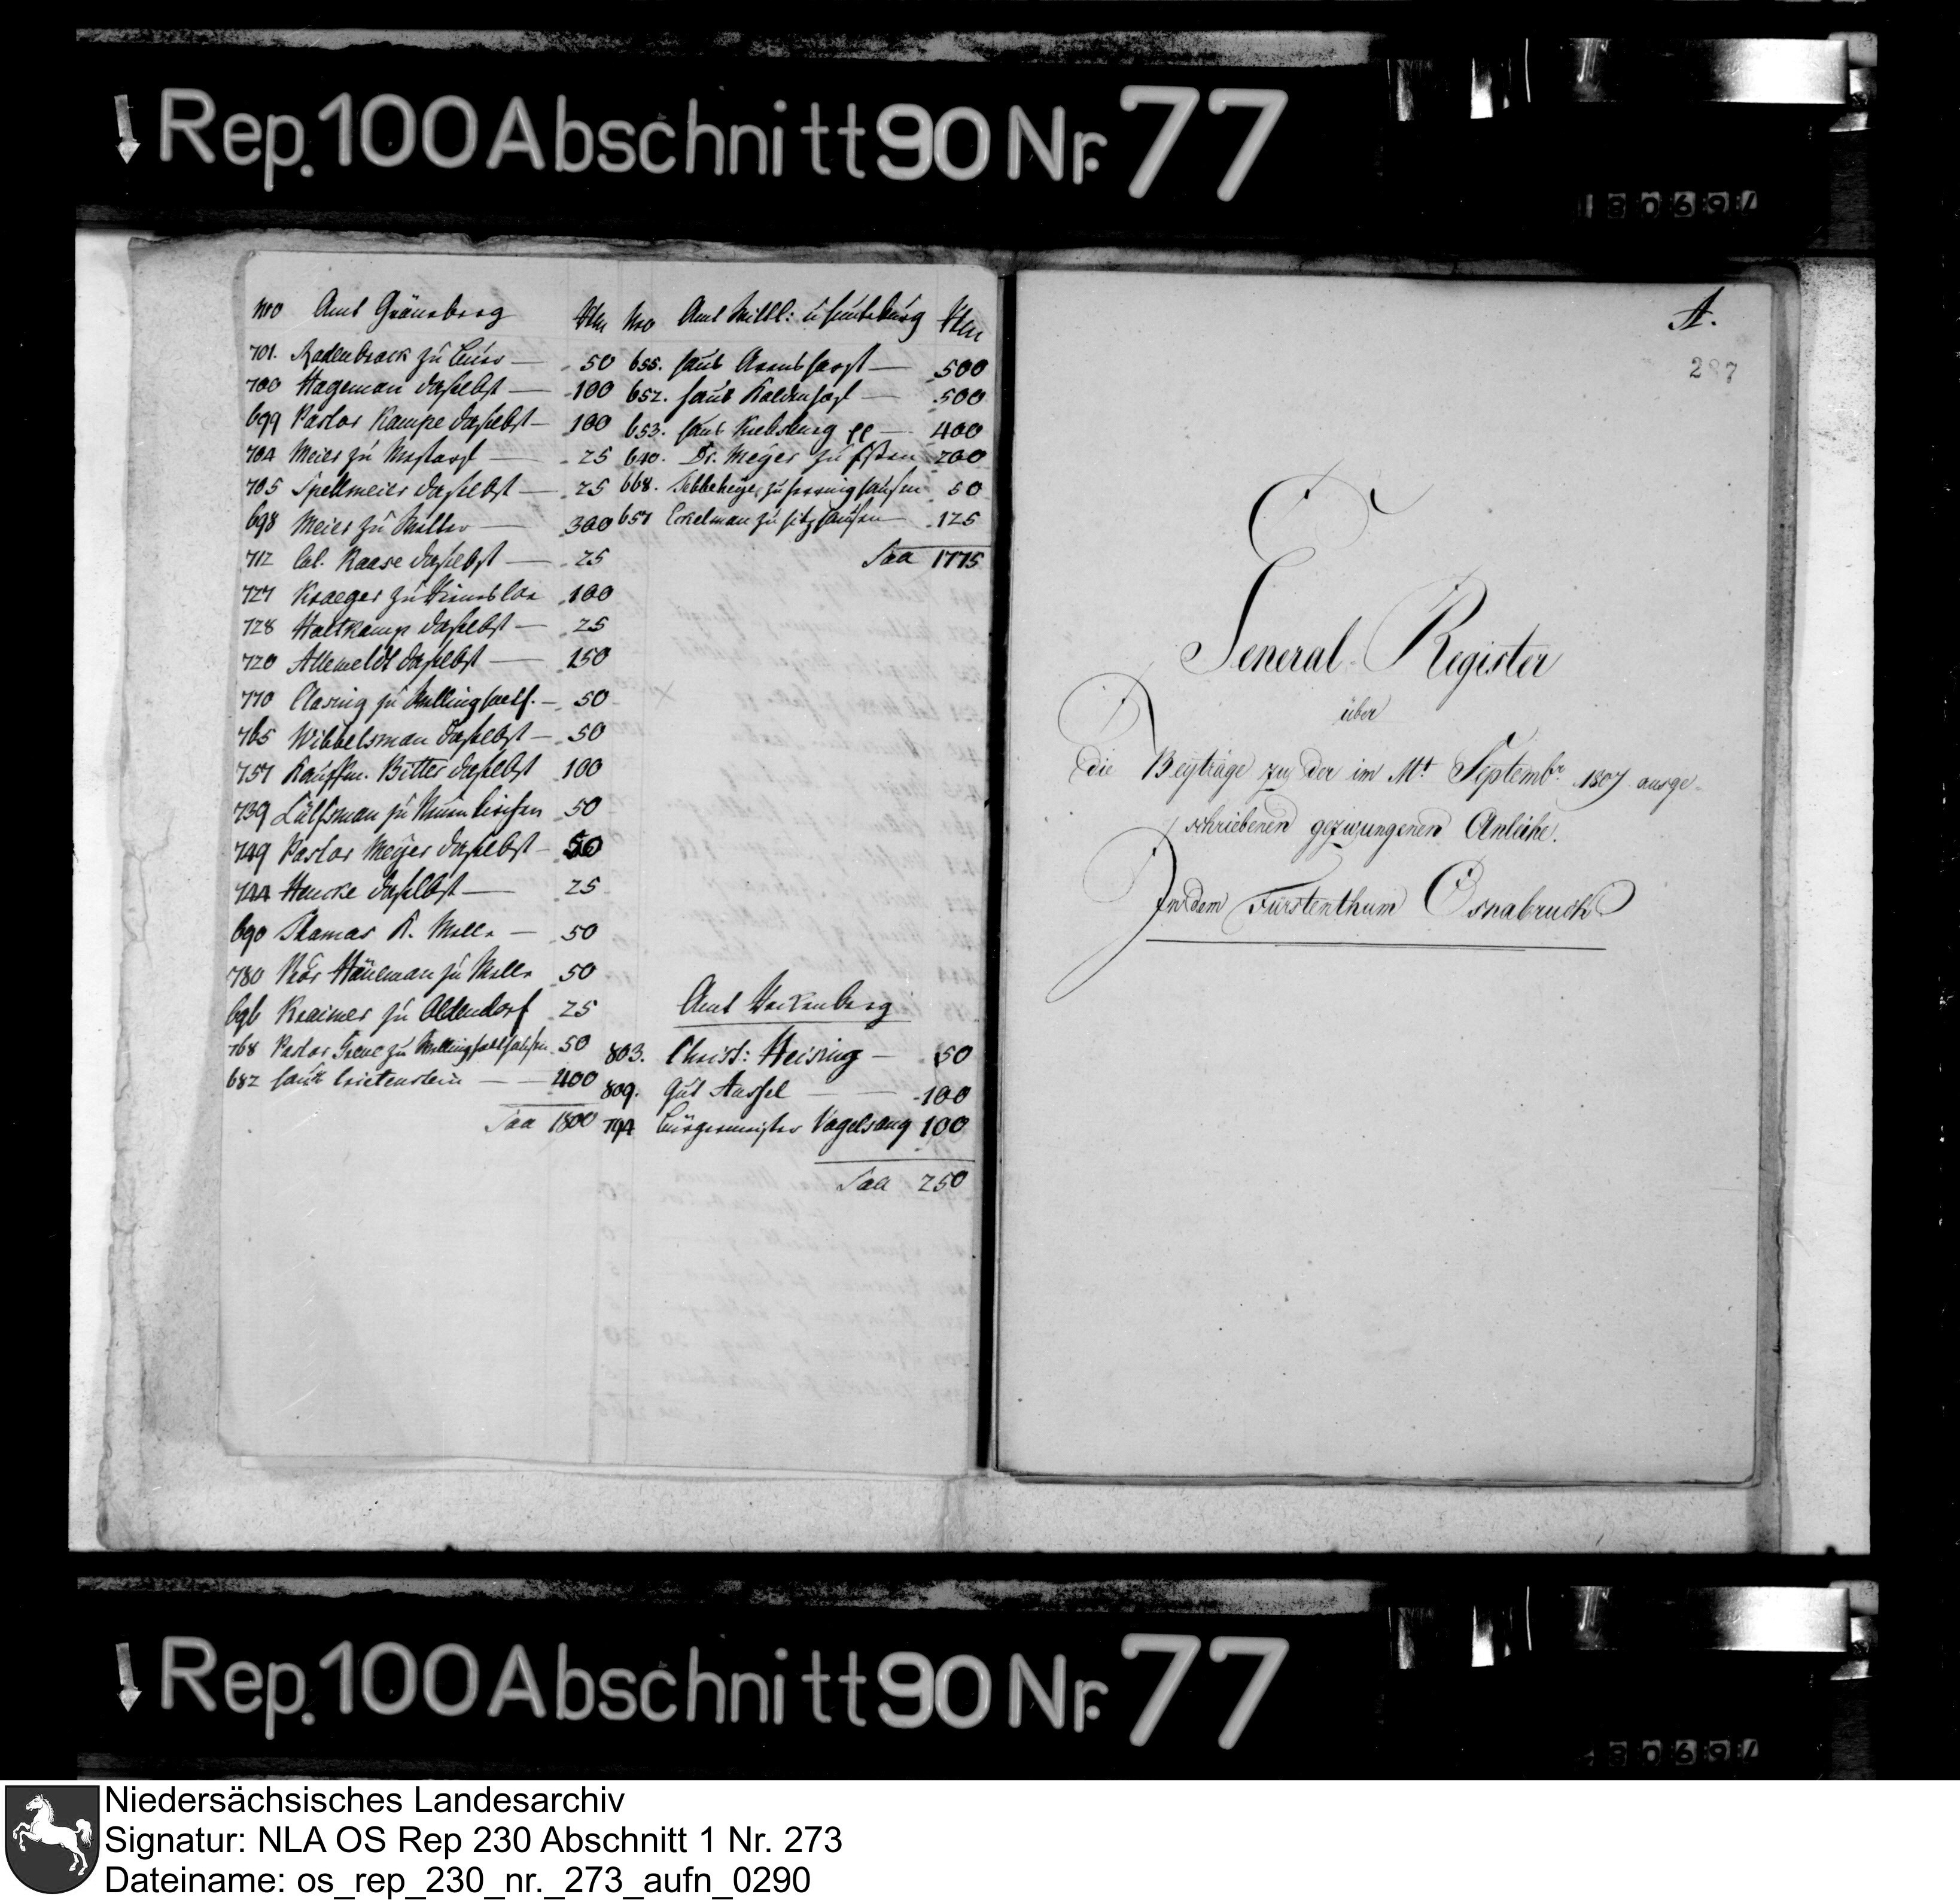 Rep. 100 Abschnitt 90 Nr. 77
Nro Amt Grönenberg Rtlr
701. Radenbrock zu Buer — 50
700 Hageman daselbst — 100
699 Pastor Kampe daselbst — 100
704 Meier zu — 25
705 Spellmeier daselbst — 25
698 Meier zu — 300
712 Col. Kaase daselbst — 25
727 Kroeger zu 100
728 Holtkamp daselbst — 25
720 daselbst — 150
770 Clasing zu — 50
765 Wibbelsman daselbst — 50
757 Kauffm. Bitter daselbst 100
739 zu Neuenkirchen 50
749 Pastor Meyer daselbst — 50
744 Hencke daselbst — 25
690 Thomas K. Melle — 50
780 zu Melle 50
696 Kraimer zu Oldendorf 25
768 Pastor zu 50
682 Haus — 400
Saa 1800
Nro Amt Wittl: u Hunteburg Rtlr
655. Haus Arenshorst — 500
652. Haus Kaldenhof — 500
653. Haus Krebsburg — 400
640. Dr. Meyer zu 200
668. zu 50
651 zu — 125
Saa 1775
Amt Vörden
803. Christ: Heising — 50
809. Gut Aussel — 100
794 Bürgermeister Vogelsang 100
Saa 250
A.
287
General-Register
über
die Beyträge zu der im Mt. Septembr. 1807 ausge-
schriebenen gezwungenen Anleihe.
In dem Fürstenthum Osnabruck
Rep. 100 Abschnitt 90 Nr. 77
Niedersächsisches Landesarchiv
Signatur: NLA OS Rep 230 Abschnitt 1 Nr. 273
Dateiname: os_rep_230_nr._273_aufn_0290